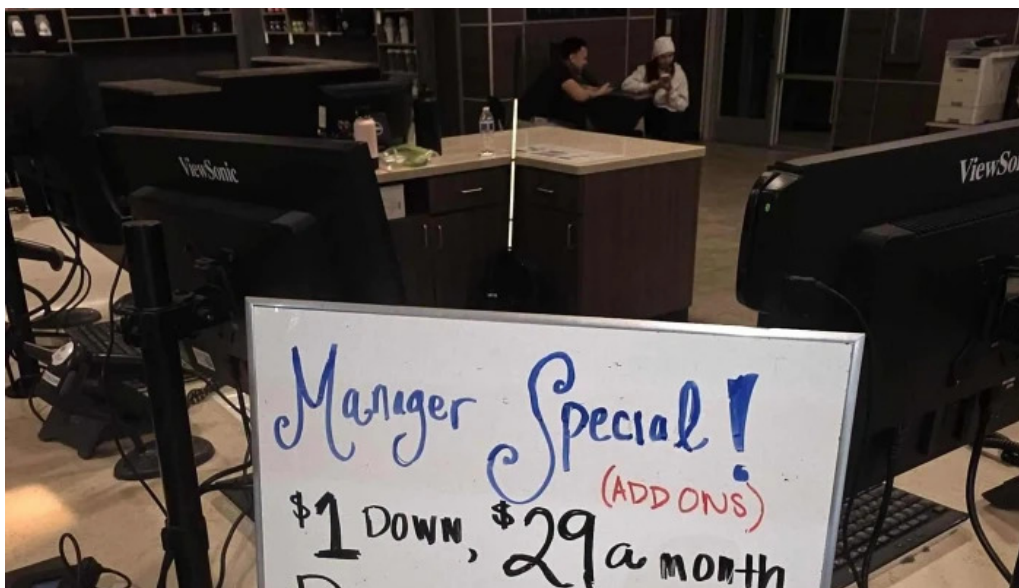 ViewSonic
Manager Special!
(ADD ONS)
$1 DOWN, $29 a month